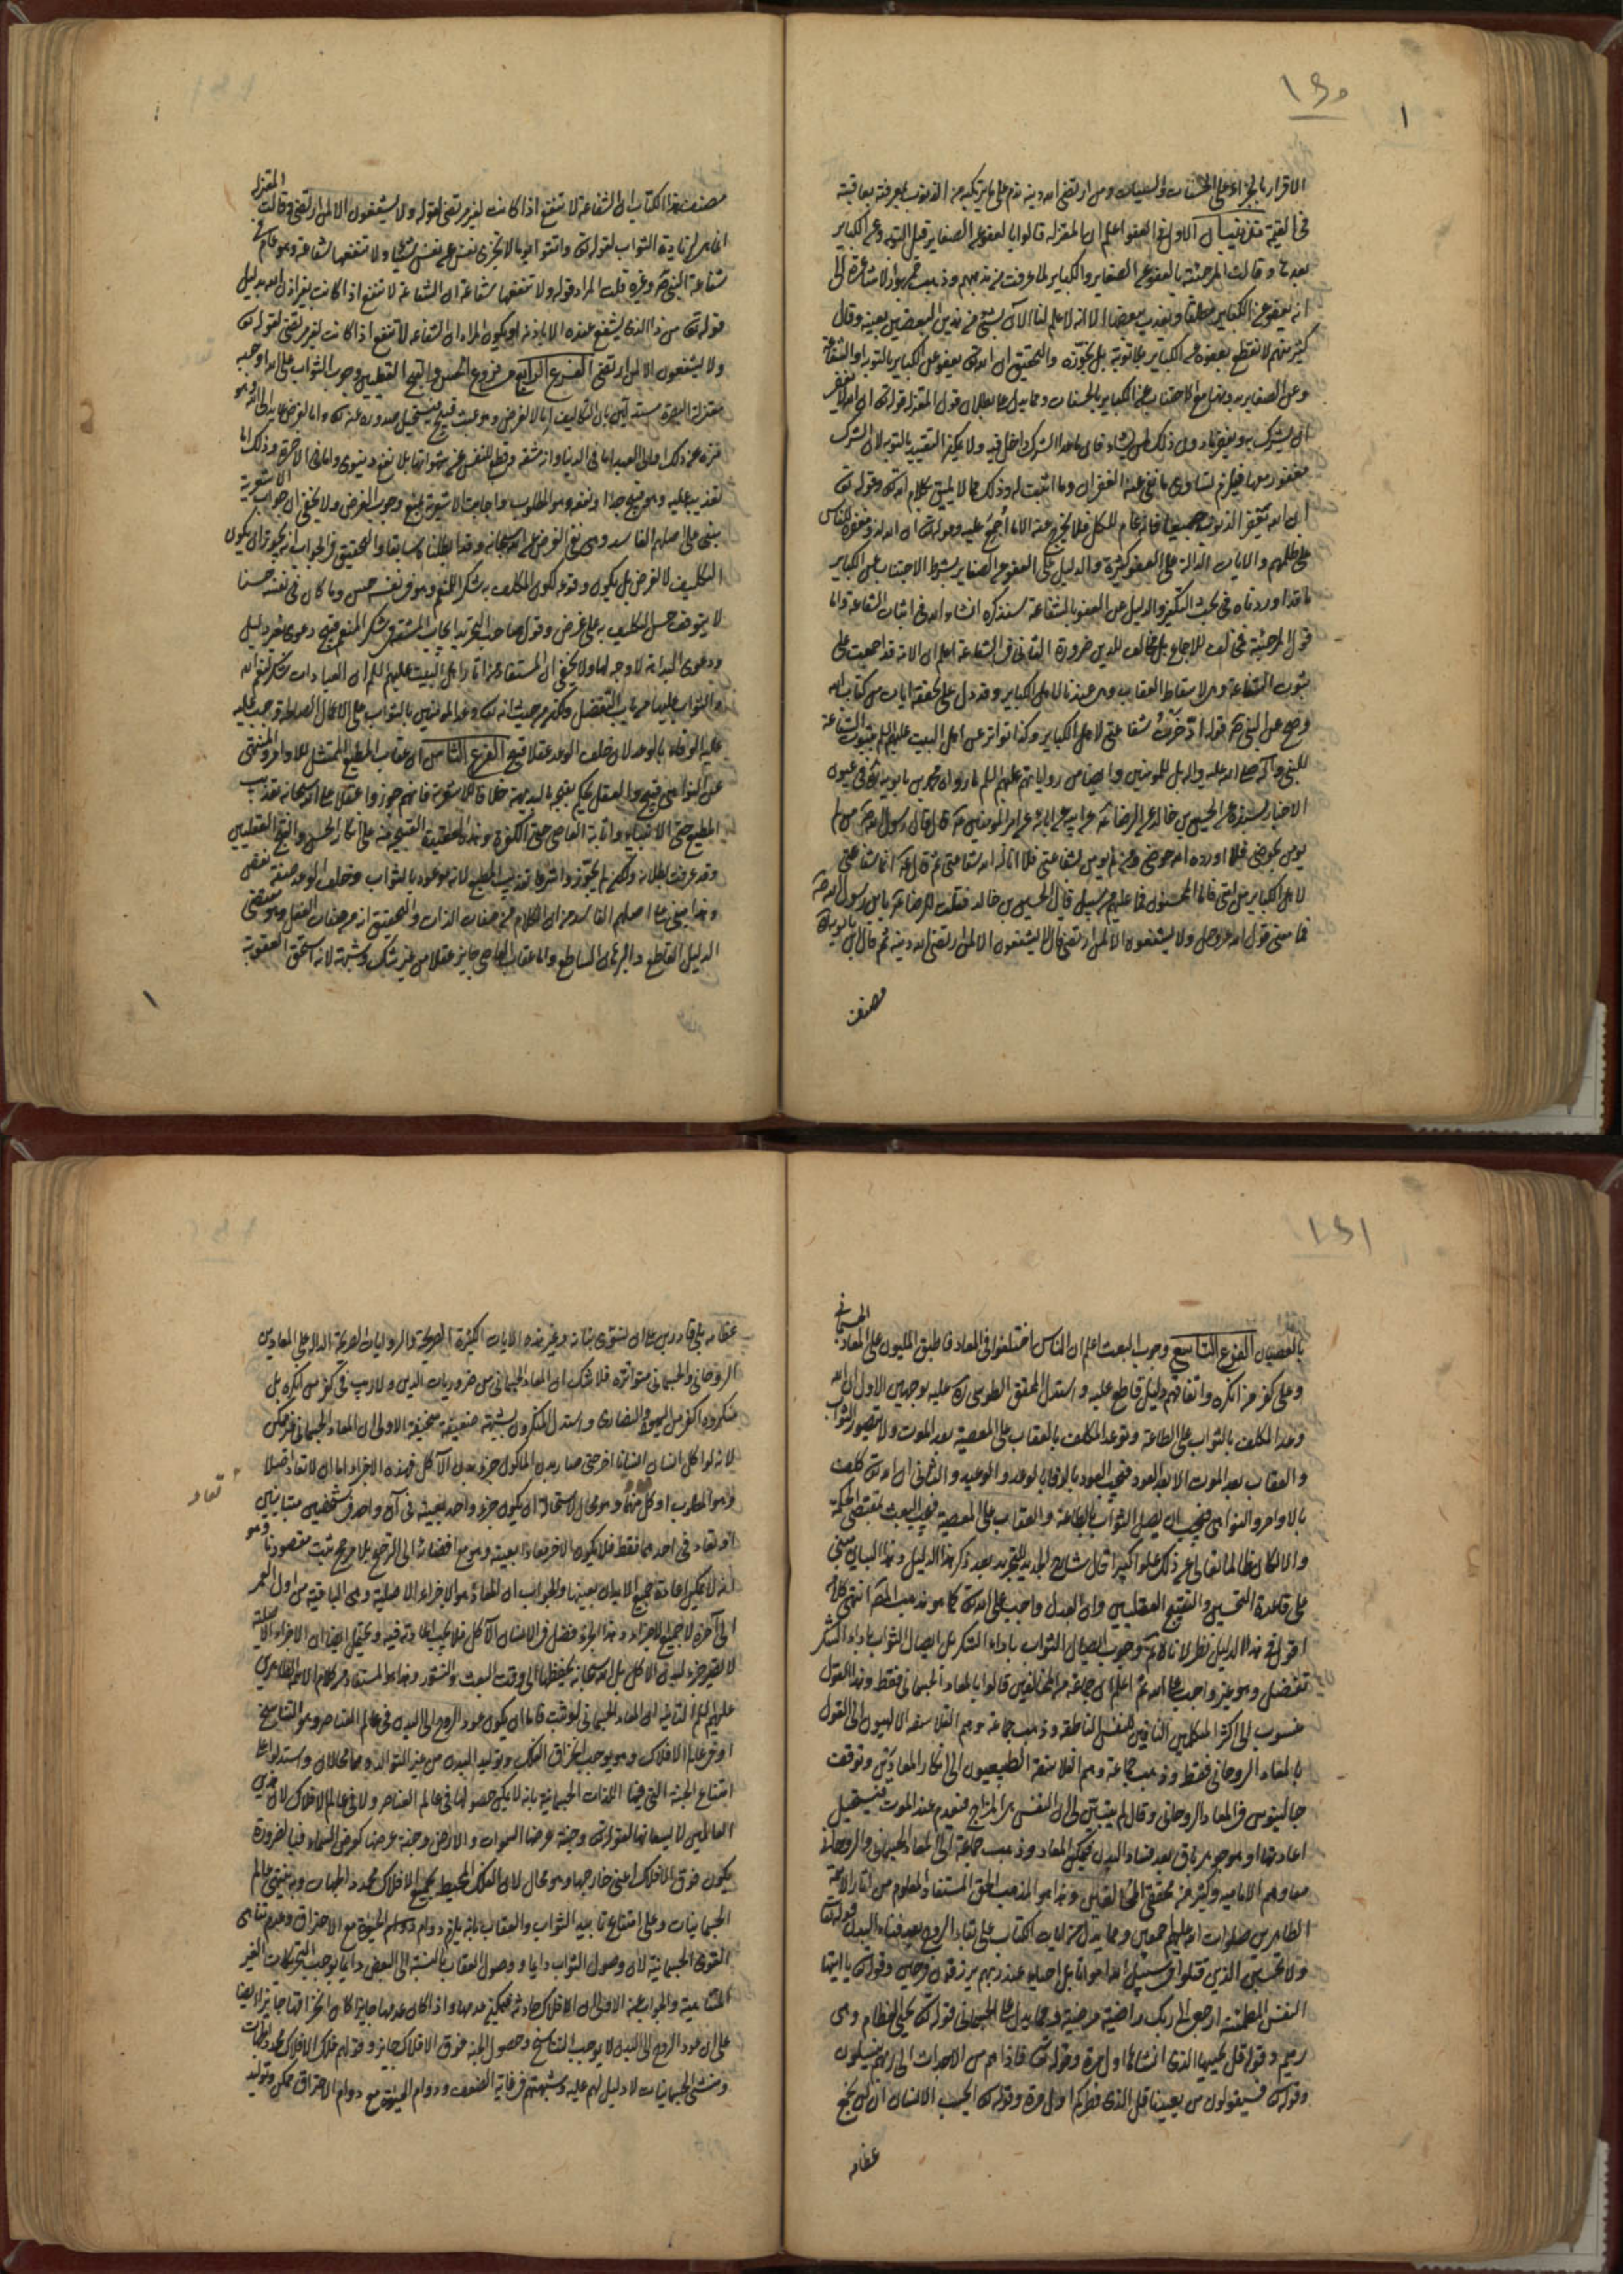 ١٥٠
١
الاقرار بالجزاء على الحسنات والسيئات ومن ارتضى الله دينه ندم على ما يرتكبه من الذنوب لمعرفته بعاقبته
في القيمة الاول في العفو اعلم ان المعتزلة قالوا بالعفو عن الصغاير قبل التوبة وعن الكباير
بعدها وقالت المرجئة بالعفو عن الصغاير والكباير لما عرفت من مذهبهم وذهب جمهور الاشاعرة الى
انه يعفو عن الكباير مطلقا ويعذب بعضها الا انه لا علم لنا الآن بشيء من هذين البعضين بعينه وقال
كثير منهم لا نقطع بعفوه عن الكباير بلا توبة بل نجوزه والتحقيق ان الله تع يعفو عن الكباير بالتوبة او الشفاعة
وعن الصغاير مع الاجتناب عن الكباير بالحسنات ومما يدل على بطلان قول المعتزلة قوله تع ان الله لا يغفر
ان يشرك به ويغفر ما دون ذلك لمن يشاء فان ما عدا الشرك داخل فيه ولا يمكن التقييد بالتوبة لان الشرك
مغفور معها فيلزم تساوي ما نفى عنه الغفران وما اثبت له وذلك مما لا يليق بكلام الله تع وقوله تع
ان الله يغفر الذنوب جميعا فانه عام للكل فلا يخرج عنه الا ما اجمع عليه وقوله تع ان الله لذو مغفرة للناس
على ظلمهم والايات الدالة على العفو كثيرة والدليل على العفو عن الصغاير بشرط الاجتناب عن الكباير
ما قد اوردناه في بحث التكفير والدليل على العفو بالشفاعة سنذكره انشاء الله في اثبات الشفاعة واما
قول المرجئة فمخالف للاجماع بل مخالف للدين ضرورة الثاني في الشفاعة اعلم ان الامة قد اجمعت على
ثبوت الشفاعة وهي لاسقاط العقاب وهي عندنا لاهل الكباير وقد دل على تحققه ايات من كتاب الله
وصح عن النبي ص قوله ادخرت شفاعتي لاهل الكباير وكذا تواتر عن اهل البيت عليهم السلم ثبوت الشفاعة
للنبي وآله صلى الله عليه واله بل للمؤمنين وايضا من رواياتهم عليهم السلم ما رواه محمد بن بابويه في عيون
الاخبار بسنده عن الحسين بن خالد عن الرضا ع عن ابيه عن ابائه عن امير المؤمنين ع قال قال رسول الله ص من لم
يؤمن بحوضي فلا اورده الله حوضي ومن لم يؤمن بشفاعتي فلا اناله الله شفاعتي ثم قال ع انما شفاعتي
لاهل الكباير من امتي فاما المحسنون فما عليهم من سبيل قال الحسين بن خالد فقلت للرضا ع يابن رسول الله ص
فما معنى قول الله عز وجل ولا يشفعون الا لمن ارتضى قال لا يشفعون الا لمن ارتضى الله دينه ثم قال ابن بابويه
مصنف
مصنف هذا الكتاب ان الشفاعة لا تنفع اذا كانت لغير مرتضى لقوله ولا يشفعون الا لمن ارتضى وقالت المعتزلة
انها لزيادة الثواب لقوله تع واتقوا يوما لا تجزي نفس عن نفس شيئا ولا تنفعها شفاعة وهو عام في
شفاعة النبي ص وغيره قلت المراد قوله ولا تنفعها شفاعة ان الشفاعة لا تنفع اذا كانت بغير اذن الله بدليل
قوله تع من ذا الذي يشفع عنده الا باذنه او يكون المراد ان الشفاعة لا تنفع اذا كانت لغير مرتضى لقوله تع
ولا يشفعون الا لمن ارتضى الفرع الرابع من فروع الحسن والقبح العقليين وجوب الثواب على الله اوجبه
معتزلة البصرة مستدلين بان التكاليف اما لا لغرض وهو عبث قبيح يستحيل صدوره عنه تع واما لغرض عايد الى الله وهو
منزه عن ذلك او الى العبد اما في الدنيا وانه مشقة وقطع للنفس عن شهواتها بلا نفع دنيوي واما في الاخرة وذلك اما
تعذيب عليه وهو قبيح جدا او نفع وهو المطلوب واجابت الاشعرية بمنع وجوب الغرض ولا يخفى ان جواب الاشعرية
يبنى على اصلهم الفاسد وهي نفي الغرض عن الله سبحانه وقد ابطلناه سابقا والتحقيق في الجواب انه يجوز ان يكون
التكليف لا لغرض بل يكون وقوعه لكون المكلف به شكرا للنعم وهو في نفسه حسن وما كان في نفسه حسنا
لا يتوقف حسن التكليف به على غرض وقول صاحب التجريد ايجاب المشقة في شكر المنعم قبيح دعوى بغير دليل
ودعوى البداهة لا وجه لها ولا يخفى ان المستفاد من اثار اهل البيت عليهم السلم ان العبادات شكر لنعم الله
والثواب عليها من باب التفضل ولكن من حيث انه تع وعد المؤمنين بالثواب على الاعمال الصالحة وجب عليه
عليه الوفاء بالوعد لان خلف الوعد عقلا قبيح الفرع الخامس ان عقاب المطيع الممتثل للاوامر والمنتهي
عن النواهي قبيح والعقل يحكم بقبحه بالبديهة خلافا للاشعرية فانهم جوزوا عقلا على الله سبحانه تعذيب
المطيع حتى الانبياء واثابة العاصي حتى الكفرة وهذه العقيدة القبيحة مبنية على انكار الحسن والقبح العقليين
وقد عرفت بطلانه ولكن لم يجوزوا شرعا تعذيب المطيع لانه موعود بالثواب وخلف الوعد صفة نقص
وهذا مبنى على اصلهم الفاسد من ان الكلام من صفات الذات والتحقيق انه من صفات الفعل وهو مقتضى
الدليل القاطع والبرهان الساطع واما عقاب العاصي جايز عقلا من غير شك وشبهة لانه استحق العقوبة
١
١٥١
بالعصيان الفرع التاسع وجوب البعث اعلم ان الناس اختلفوا في المعاد فاطبق المليون على المعاد الجسماني
وعلى كفر من انكره واتفاقهم دليل قاطع عليه واستدل المحقق الطوسي ره عليه بوجهين الاول ان الله
وعد المكلف بالثواب على الطاعة وتوعد المكلف بالعقاب على المعصية بعد الموت ولا يتصور الثواب
والعقاب بعد الموت الا بعد العود فيجب العود بالوفاء بالوعد والوعيد والثاني ان الله تع كلف
بالاوامر والنواهي فيجب ان يصل الثواب بالطاعة والعقاب على المعصية فيجب البعث بمقتضى الحكمة
والا لكان ظالما تعالى عن ذلك علوا كبيرا قال شارح الجديد للتجريد بعد ذكر هذا الدليل وهذا البيان مبني
على قاعدة التحسين والتقبيح العقليين وان العدل واجب على الله تع كما هو مذهب المص انتهى كلامه
اقول في هذا الدليل نظر لانا لا نم وجوب ايصال الثواب باداء الشكر بل ايصال الثواب باداء الشكر
تفضل وهو غير واجب على الله ثم اعلم ان جماعة من المخالفين قالوا بالمعاد الجسماني فقط وهذا القول
منسوب الى اكثر المتكلمين النافين للنفس الناطقة وذهب جماعة وهم الفلاسفة الالهيون الى القول
بالمعاد الروحاني فقط وذهب جماعة وهم الفلاسفة الطبيعيون الى انكار المعادين وتوقف
جالينوس في المعاد الروحاني وقال لم يتبين لي ان النفس هي المزاج فتعدم عند الموت فيستحيل
اعادتها او هو جوهر باق بعد فساد البدن فيمكن المعاد وذهب جماعة الى المعاد الجسماني والروحاني
معا وهم الامامية وكثير من محققي المخالفين وهذا هو المذهب الحق المستفاد المعلوم من اثار الائمة
الطاهرين صلوات الله عليهم اجمعين ومما يدل من ايات الكتاب على بقاء الروح بعد فناء البدن قوله تع
ولا تحسبن الذين قتلوا في سبيل الله امواتا بل احياء عند ربهم يرزقون فرحين وقوله تع يا ايتها
النفس المطمئنة ارجعي الى ربك راضية مرضية ومما يدل على الجسماني قوله تع من يحيي العظام وهي
رميم وقوله قل يحييها الذي انشاها اول مرة وقوله تع فاذا هم من الاجداث الى ربهم ينسلون
وقوله تع فسيقولون من يعيدنا قل الذي فطركم اول مرة وقوله تع ايحسب الانسان ان لن نجمع
عظامه
عظامه بلى قادرين على ان نسوي بنانه وغير هذه الايات الكثيرة الصريحة والروايات الصريحة الدالة على المعادين
الروحاني والجسماني متواترة فلا شك ان المعاد الجسماني من ضروريات الدين ولا ريب في كفر من انكره بل
منكروه اكفر من اليهود والنصارى واستدل المنكرون بشبهة ضعيفة سخيفة الاولى ان المعاد الجسماني غير ممكن
لانه لو اكل انسان انسانا اخر حتى صار بدن الماكول جزء بدن الآكل فهذه الاجزاء اما ان لا تعاد اصلا
وهو المطلوب او كل منهما وهو محال لاستحالة ان يكون جزء واحد بعينه في آن واحد في شخصين متباينين
تعاد
او تعاد في احدهما فقط فلا يكون الاخر معادا بعينه وهو مع افضائه الى الترجيح بلا مرجح يثبت مقصودنا وهو
انه لا يمكن اعادة جميع الابدان بعينها والجواب ان المعاد هو الاجزاء الاصلية وهي الباقية من اول العمر
الى آخره لا جميع الاجزاء وهذا الجزء فضل في الانسان الآكل فلا يجب اعادته فيه ويحتمل ايضا ان الاجزاء الاصلية
لا تصير جزء لبدن الاكل بل الله سبحانه يحفظها الى وقت البعث والنشور وهذا هو المستفاد من كلام الائمة الطاهرين
عليهم السلم الثانية ان المعاد الجسماني لو ثبت فاما ان يكون عود الروح الى البدن في عالم العناصر وهو التناسخ
او في عالم الافلاك وهو يوجب انخراق الفلك وتوليد البدن من غير التوالد وهما محالان واستدلوا على
امتناع الجنة التي فيها اللذات الجسمانية بانه لا يمكن حصولها في عالم العناصر ولا في عالم الافلاك لان هذين
العالمين لا يسعانها لقوله تع وجنة عرضها السموات والارض وجنة عرضها كعرض السماء فبالضرورة
يكون فوق الافلاك اعني خارجها وهو محال لان الفلك المحيط بجميع الافلاك محدد الجهات وبه ينتهي عالم
الجسمانيات وعلى امتناع تابيد الثواب والعقاب بانه يلزم دوام الحيوة مع الاحتراق وعدم تناهي
القوى الجسمانية لان وصول الثواب دايما ووصول العقاب بالنسبة الى البعض دايما يوجب التحريكات الغير
المتناهية والجواب عن الاولى ان الافلاك حادثة فيمكن عدمها واذا كان عدمها جايزا كان انخراقها جايزا ايضا
على ان عود الروح الى البدن لا يوجب التناسخ وحصول الجنة فوق الافلاك جايز وقولهم فلك الافلاك محدد الجهات
ومنتهى الجسمانيات لا دليل لهم عليه وشبهتهم في غاية الضعف ودوام الحيوة مع دوام الاحتراق ممكن وتوليد